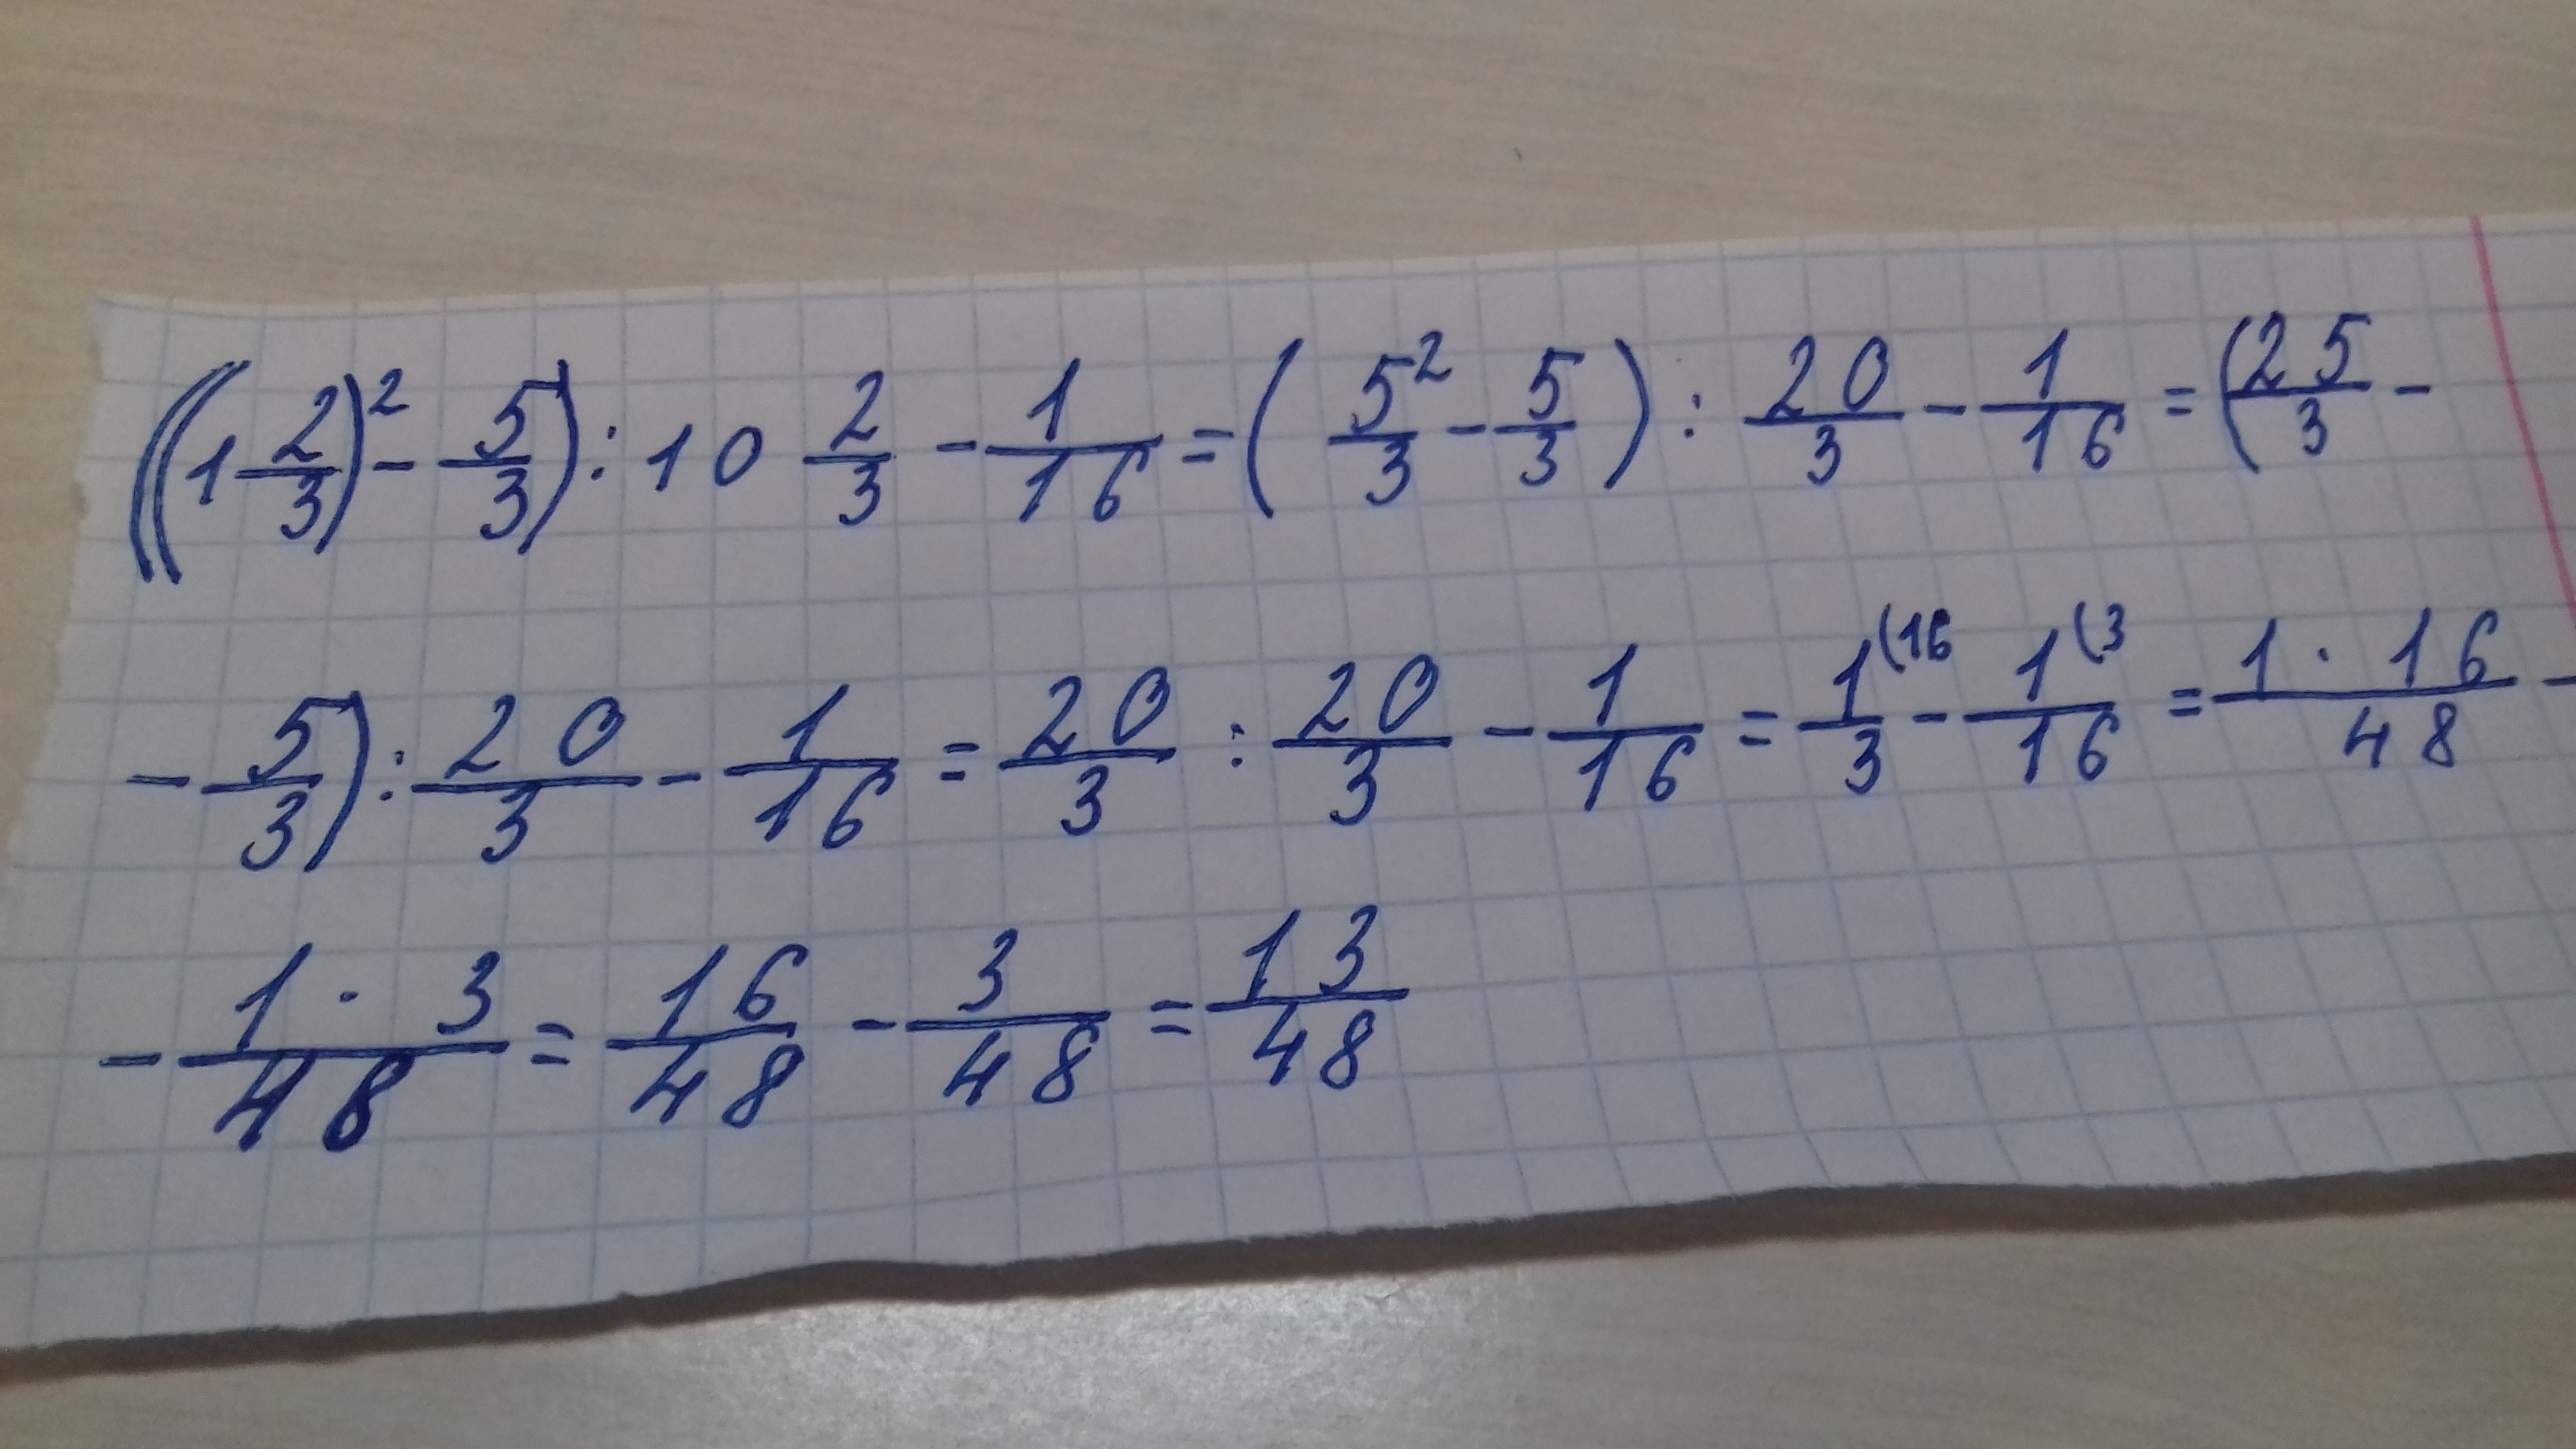 ((1 2/3)² - 5/3) : 10 2/3 - 1/16 = (5²/3 - 5/3) : 20/3 - 1/16 = (25/3 -
- 5/3) : 20/3 - 1/16 = 20/3 : 20/3 - 1/16 = 1(16/3 - 1(3/16 = 1 · 16/48 -
- 1 · 3/48 = 16/48 - 3/48 = 13/48